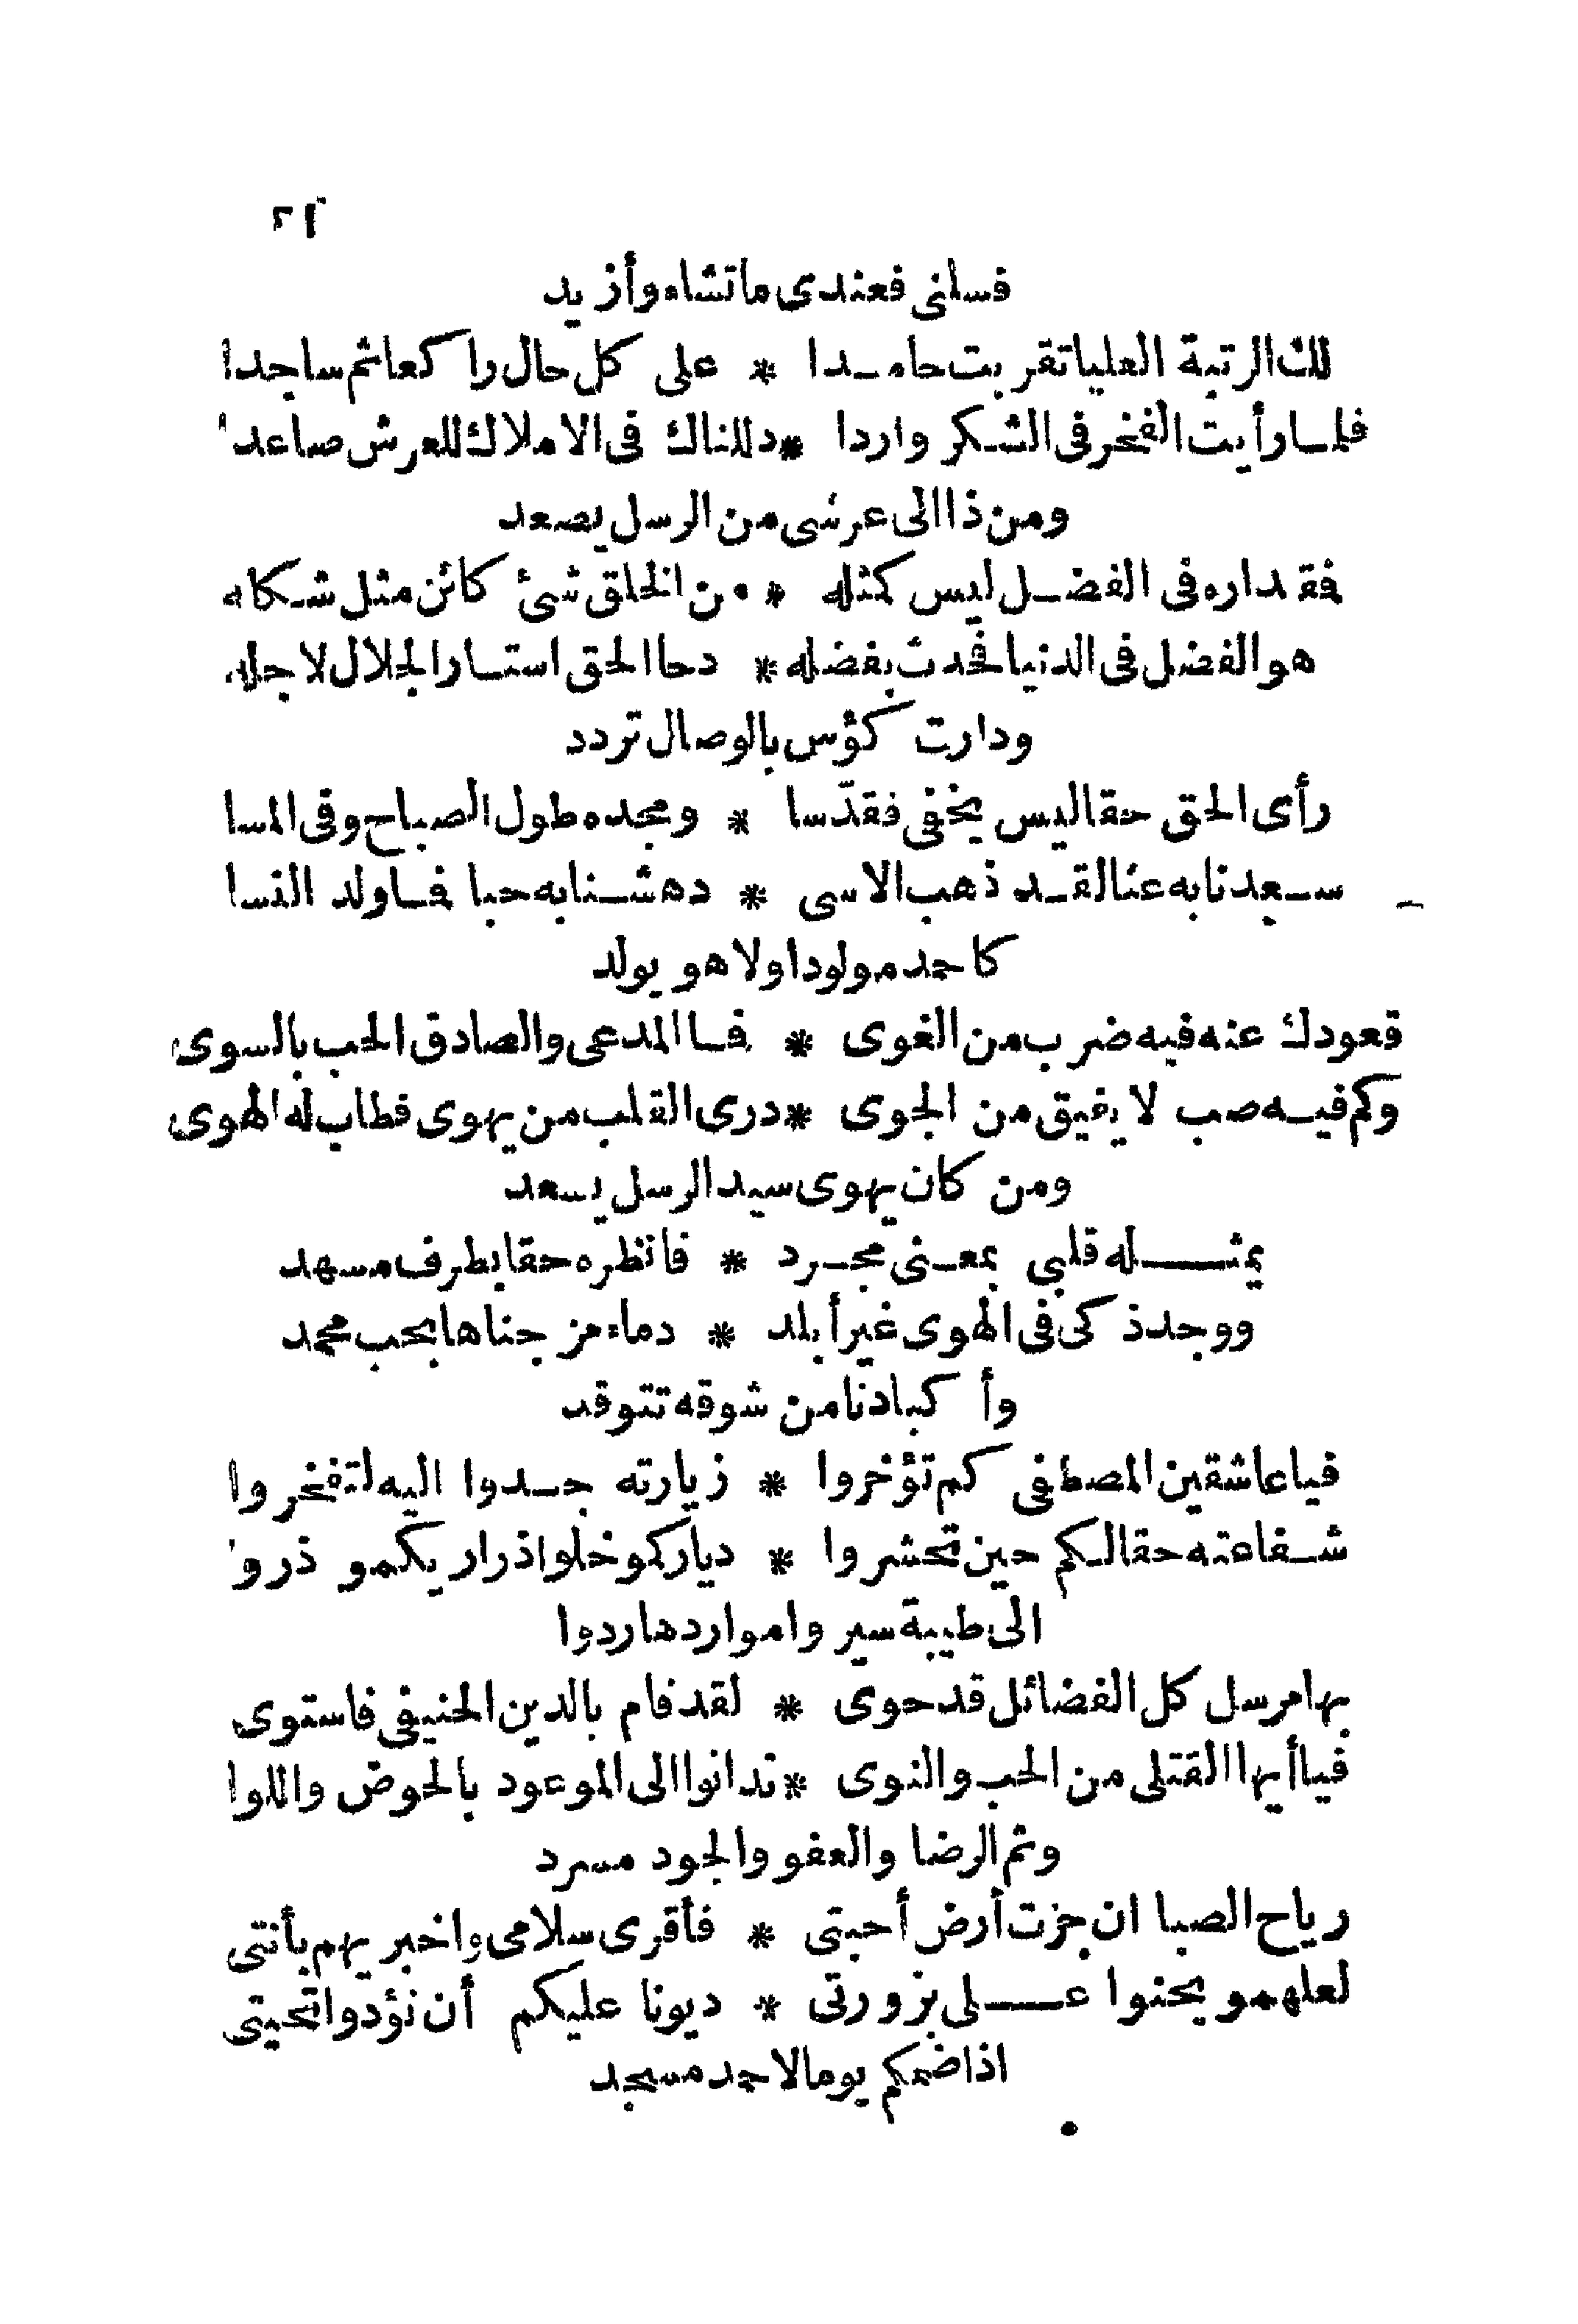 ٢١
فسلنى فعندى ماتشاء وأزيد
لك الرتبة العليا تقربت حامدا * على كل حال راكعا ثم ساجدا
فلما رأيت الفخر فى الشكر واردا * دللناك فى الاملاك للعرش صاعدا
ومن ذا الى عرشى من الرسل يصعد
فقداره فى الفضل ليس كمثله * من الخلق شئ كائن مثل شكله
هو الفضل فى الدنيا فحدث بفضله * دحا الحق استار الجلال لاجله
ودارت كؤس بالوصال تردد
رأى الحق حقا ليس يخفى فقدّسا * ومجده طول الصباح وفى المسا
سعدنا به عنا لقد ذهب الاسى * دهشنا به حبا فما ولد النسا
كاحمد مولودا ولا هو يولد
قعودك عنه فيه ضرب من الغوى * فما المدعى والصادق الحب بالسوى
وكم فيه صب لا يفيق من الجوى * درى القلب من يهوى فطاب له الهوى
ومن كان يهوى سيد الرسل يسعد
يمثله قلبى بمعنى مجرد * فانظره حقا بطرف مسهد
ووجد ذكى فى الهوى غير أبلد * دماء مز جناها بحب محمد
وأكبادنا من شوقه تتوقد
فياعاشقين المصطفى كم تؤخروا * زيارته جدوا اليه لتفخروا
شفاعته حقا لكم حين تحشروا * دياركمو خلوا ذراريكمو ذروا
الى طيبة سيروا مواردها ردوا
بها مرسل كل الفضائل قد حوى * لقد قام بالدين الحنيفى فاستوى
فيا أيها القتلى من الحب والنوى * تدانوا الى الموعود بالحوض واللوا
وثم الرضا والعفو والجود مسرد
رياح الصبا ان جزت أرض أحبتى * فأقرى سلامى واخبريهم بأنتى
لعلهمو يحنوا على بزورتى * ديونا عليكم أن نؤدوا تحيتى
اذا ضمكم يوما لاحمد مسجد